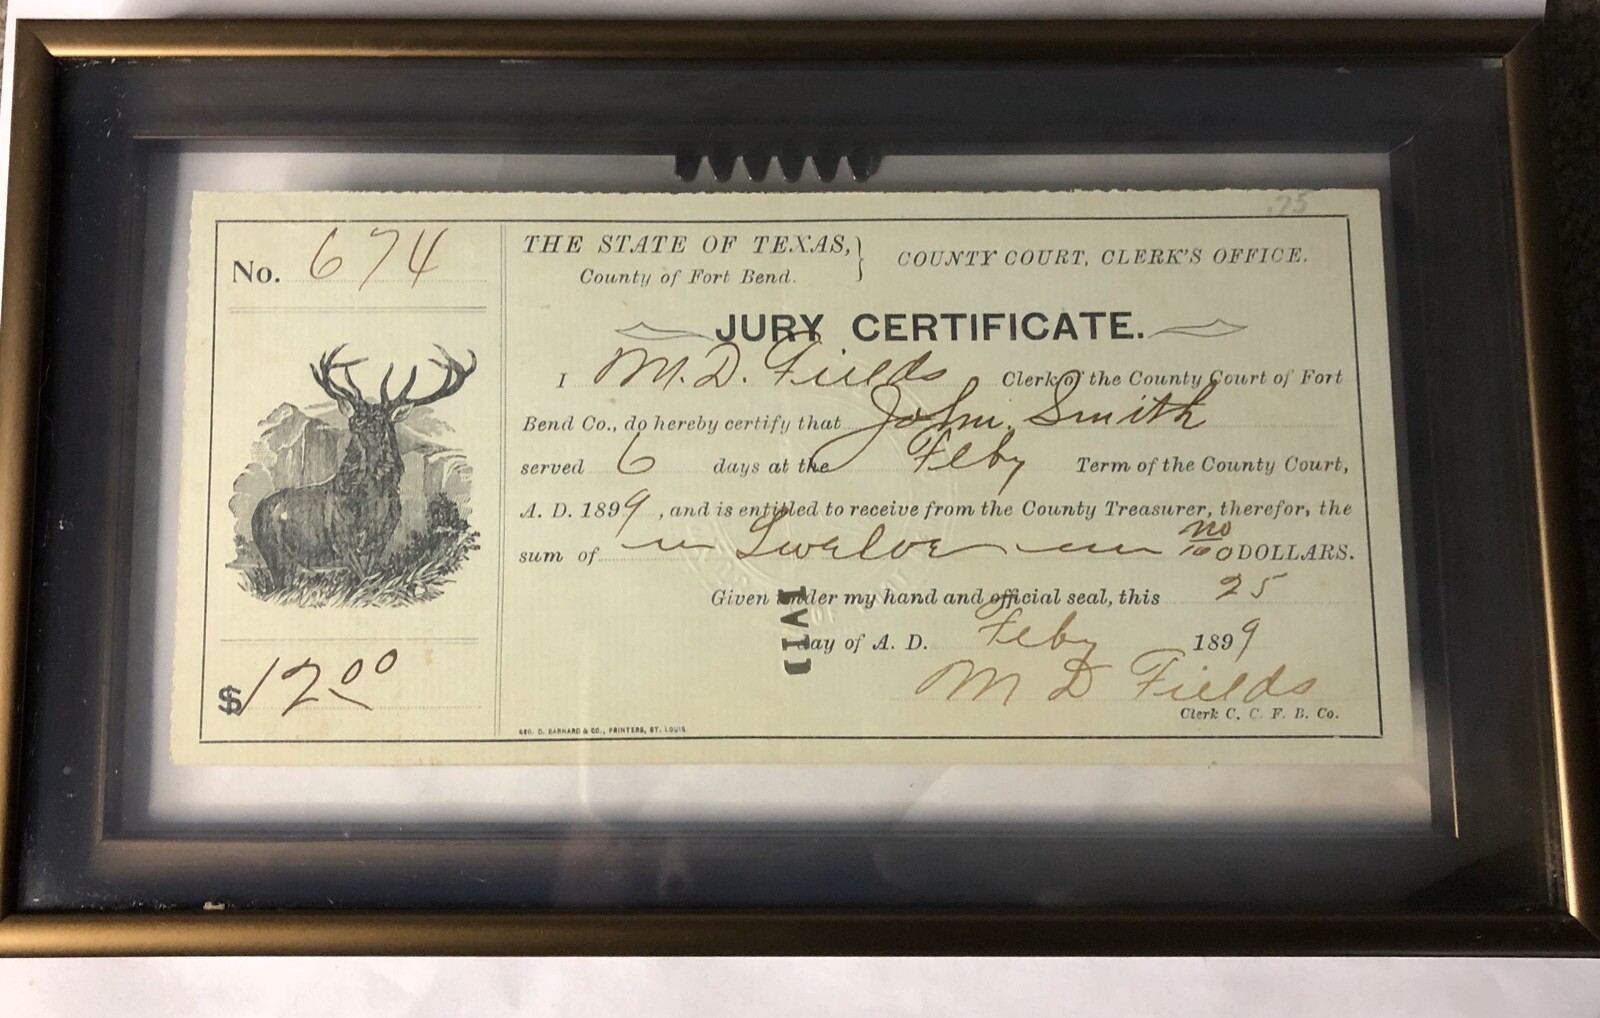 .75
No. 674
THE STATE OF TEXAS,
County of Fort Bend.
COUNTY COURT, CLERK'S OFFICE.
JURY CERTIFICATE.
I M. D. Fields Clerk of the County Court of Fort
Bend Co., do hereby certify that John Smith
served 6 days at the Feby Term of the County Court,
A. D. 1899, and is entitled to receive from the County Treasurer, therefor, the
sum of Twelve no/100 DOLLARS.
Given under my hand and official seal, this 25
day of A. D. Feby 1899
M D Fields
Clerk C. C. F. B. Co.
$12.00
GEO. D. BARNARD & CO., PRINTERS, ST. LOUIS